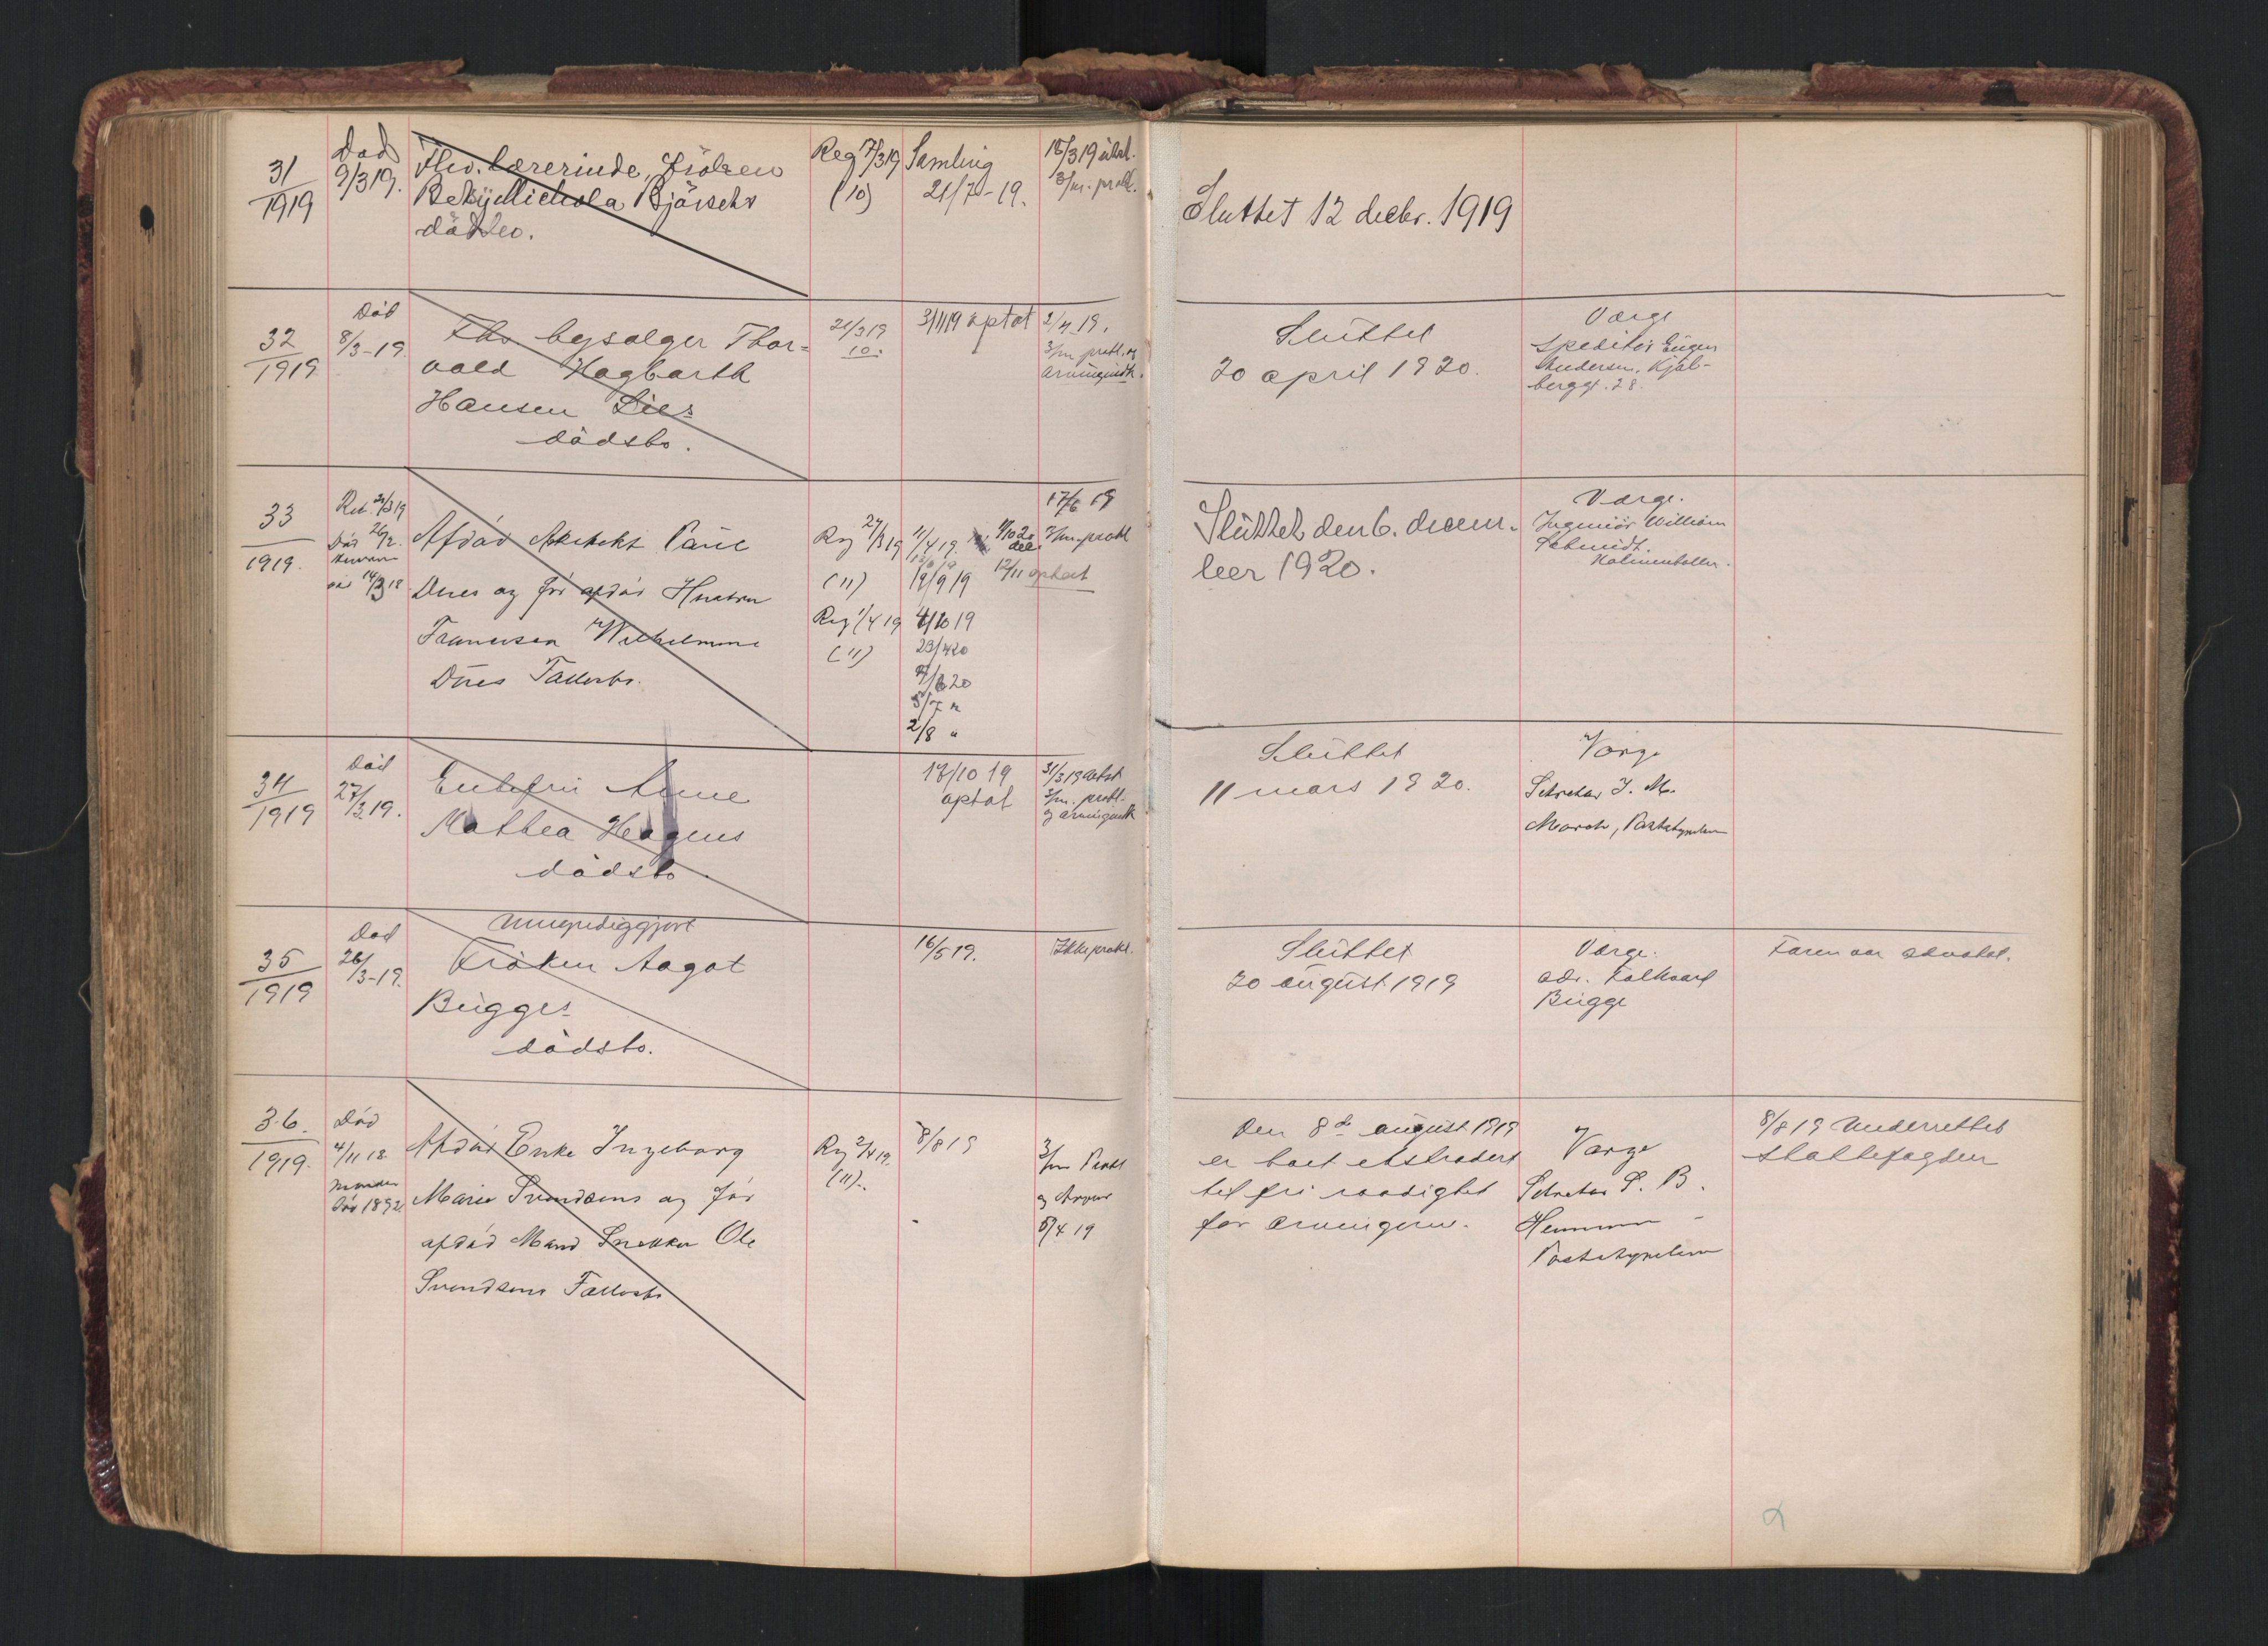 31
1919
Død
9/3 19.
Fhv. lærerinde, frøken
Betzy Michola Bjørsets
dødsbo.
Reg 17/3 19
(10)
Samling
21/7 - 19.
3/m. prokl.
Sluttet 12 decbr. 1919
32
1919
Død
8/3 - 19.
Fhv. bysælger Thor-
vald Hagbarth
Hansen Lies
dødsbo.
21/3 19
10.
3/11 19 optat
2/4 19.
3/m prokl. og
Sluttet
20 april 1920.
Værge
Speditør Eugen
Andersen, Kjøl-
berggt. 28.
33
1919.
Død 26/2.
Afdød Arkitekt Paul
Dues og før afdød Hustru
Francisca Wilhelmine
Dues Fællesbo.
Reg 24/3 19
(11)
Reg 1/4 19
(11)
11/4 19.
19/9 19
4/10 19
23/4 20
5/7 "
2/8 "
17/6 19
3/m prokl
12/11 optat
Sluttet den 6. decem-
ber 1920.
Værge.
Ingeniør William
Schmidt.
Holmenkollen.
34
1919
Død
27/3 19.
Enkefru Anne
Mathea Hagens
dødsbo
18/10 19
optat
31/3 19
3/m. prokl.
Sluttet
11 mars 1920.
Værge
Sekretær J. M.
35
1919
Død
26/3 - 19.
Umyndiggjort
Frøken Aagot
Bugges
dødsbo.
16/5 19.
Ikke prokl.
Sluttet
20 august 1919
Værge.
adv. Folkvard
Bugge
Faren var advokat.
36.
1919.
Død
4/11 18
Manden
død 1892
Afdød Enke Ingeborg
Marie Svendsens og før
afdød Mand Snekker Ole
Svendsens Fællesbo
Reg 2/4 19.
(11).
8/8 19
3/m Prokl
5/4 19
Den 8de august 1919
er boet ekstradert
til fri raadighet
for arvingerne.
Værge
Sekretær S. B.
8/8 19 Underrettet
skattefogden